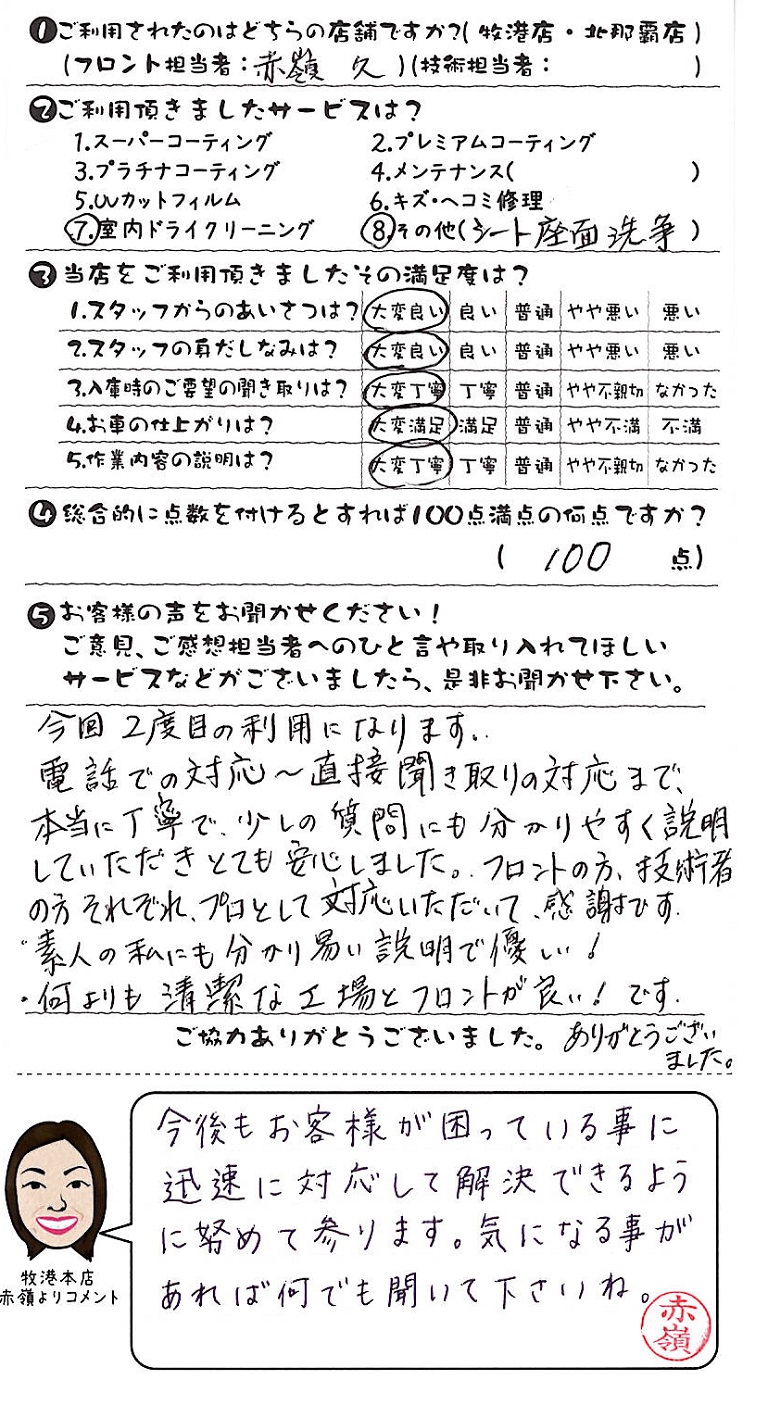 ❶ご利用されたのはどちらの店舗ですか?( 牧港店・北那覇店 )
(フロント担当者:赤嶺 久 )(技術担当者: )
❷ご利用頂きましたサービスは?
1.スーパーコーティング 2.プレミアムコーティング
3.プラチナコーティング 4.メンテナンス( )
5.UVカットフィルム 6.キズ・ヘコミ修理
⑦.室内ドライクリーニング ⑧.その他(シート座面洗浄 )
❸当店をご利用頂きましたその満足度は?
1.スタッフからのあいさつは? 大変良い 良い 普通 やや悪い 悪い
2.スタッフの身だしなみは? 大変良い 良い 普通 やや悪い 悪い
3.入庫時のご要望の聞き取りは? 大変丁寧 丁寧 普通 やや不親切 なかった
4.お車の仕上がりは? 大変満足 満足 普通 やや不満 不満
5.作業内容の説明は? 大変丁寧 丁寧 普通 やや不親切 なかった
❹総合的に点数を付けるとすれば100点満点の何点ですか?
( 100 点)
❺お客様の声をお聞かせください!
ご意見、ご感想担当者へのひと言や取り入れてほしい
サービスなどがございましたら、是非お聞かせ下さい。
今回2度目の利用になります..
電話での対応〜直接聞き取りの対応まで、
本当に丁寧で、少しの質問にも分かりやすく説明
していただきとても安心しました。. フロントの方、技術者
の方それぞれ、プロとして対応いただいて、感謝です.
・素人の私にも分かり易い説明で優しい!
・何よりも清潔な工場とフロントが良い!です.
ご協力ありがとうございました。 ありがとうござい
ました。
今後もお客様が困っている事に
迅速に対応して解決できるよう
に努めて参ります。気になる事が
あれば何でも聞いて下さいね。
赤嶺
牧港本店
赤嶺よりコメント